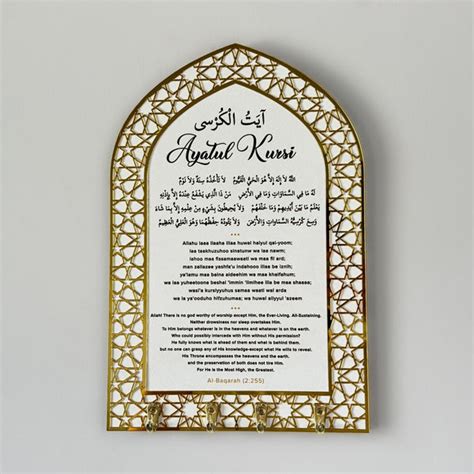 آيَتُ الْكُرْسِى
Ayatul Kursi
اللهُ لَا إِلٰهَ إِلَّا هُوَ الْحَيُّ الْقَيُّومُ لَا تَأْخُذُهُ سِنَةٌ وَلَا نَوْمٌ
لَهُ مَا فِي السَّمَاوَاتِ وَمَا فِي الْأَرْضِ مَنْ ذَا الَّذِي يَشْفَعُ عِنْدَهُ إِلَّا بِإِذْنِهِ
يَعْلَمُ مَا بَيْنَ أَيْدِيهِمْ وَمَا خَلْفَهُمْ وَلَا يُحِيطُونَ بِشَيْءٍ مِنْ عِلْمِهِ إِلَّا بِمَا شَاءَ
وَسِعَ كُرْسِيُّهُ السَّمَاوَاتِ وَالْأَرْضَ وَلَا يَئُودُهُ حِفْظُهُمَا وَهُوَ الْعَلِيُّ الْعَظِيمُ
Allahu laaa ilaaha illaa huwal haiyul qai-yoom;
laa taakhuzuhoo sinatunw wa laa nawm;
lahoo maa fissamaawaati wa maa fil ard;
man zallazee yashfa'u indahooo illaa be iznih;
ya'lamu maa baina aideehim wa maa khalfahum;
wa laa yuheetoona beshai 'immin 'ilmihee illa be maa shaaaa;
wasi'a kursiyyuhus samaa waati wal arda
wa la ya'ooduho hifzuhumaa; wa huwal aliyyul 'azeem
Allah! There is no god worthy of worship except Him, the Ever-Living, All-Sustaining.
Neither drowsiness nor sleep overtakes Him.
To Him belongs whatever is in the heavens and whatever is on the earth.
Who could possibly intercede with Him without His permission?
He fully knows what is ahead of them and what is behind them,
but no one can grasp any of His knowledge-except what He wills to reveal.
His Throne encompasses the heavens and the earth,
and the preservation of both does not tire Him.
For He is the Most High, the Greatest.
Al-Baqarah (2:255)